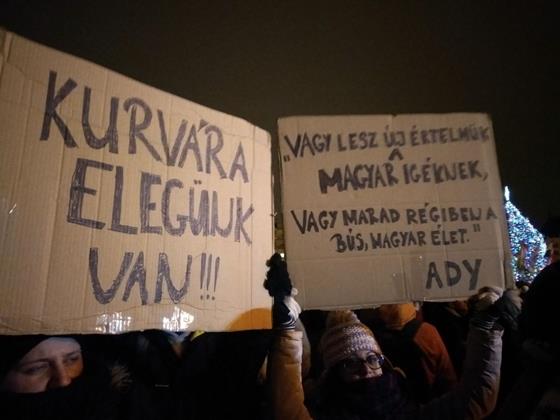 KURVÁRA
ELEGÜNK
VAN!!!
"VAGY LESZ ÚJ ÉRTELMÜK
A
MAGYAR IGÉKNEK,
VAGY MARAD RÉGIBEN A
BÚS, MAGYAR ÉLET."
ADY